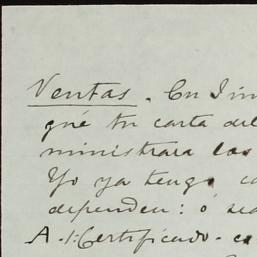 Ventas. En
qué tu carta del
ministrara las
Yo ya tengo
dependen: ó
A - 1: Certificado -